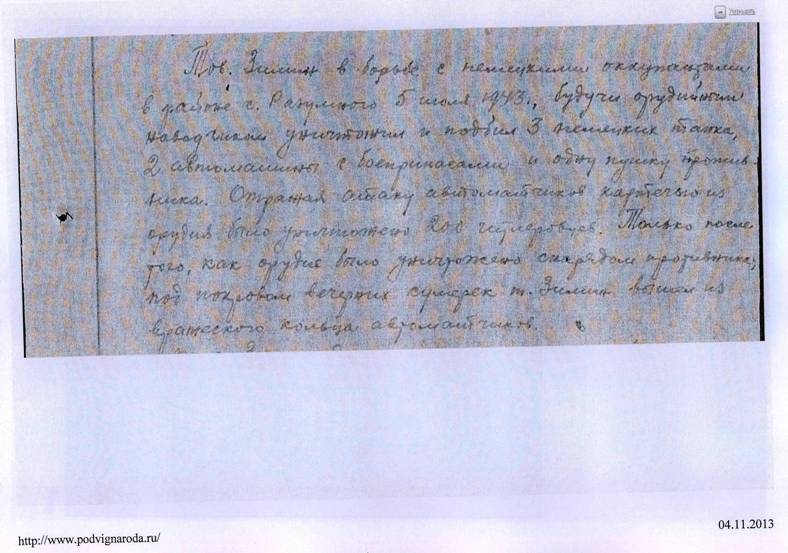 Уменьшить
Тов. Зимин в борьбе с немецкими оккупантами
в районе с. Разумного 5 июля 1943г., будучи орудийным
наводчиком уничтожил и подбил 3 немецких танка,
2 автомашины с боеприпасами и одну пушку против-
ника. Отражая атаку автоматчиков картечью из
орудия было уничтожено 200 гитлеровцев. Только после
того, как орудие было уничтожено снарядом противника,
под покровом вечерних сумерек т. Зимин вышел из
вражеского кольца автоматчиков.
04.11.2013
http://www.podvignaroda.ru/